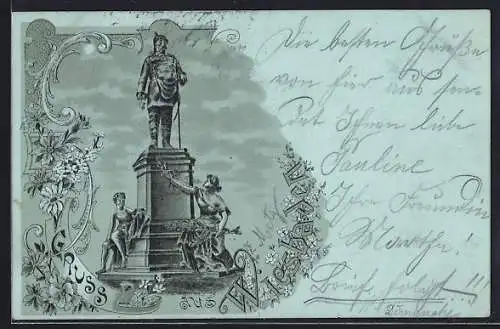 Gruss
aus
Wiesbaden
Die besten Grüße
von hier aus sen-
det Ihnen liebe
Pauline
Ihre Freundin
Martha!
Brief folgt!!!